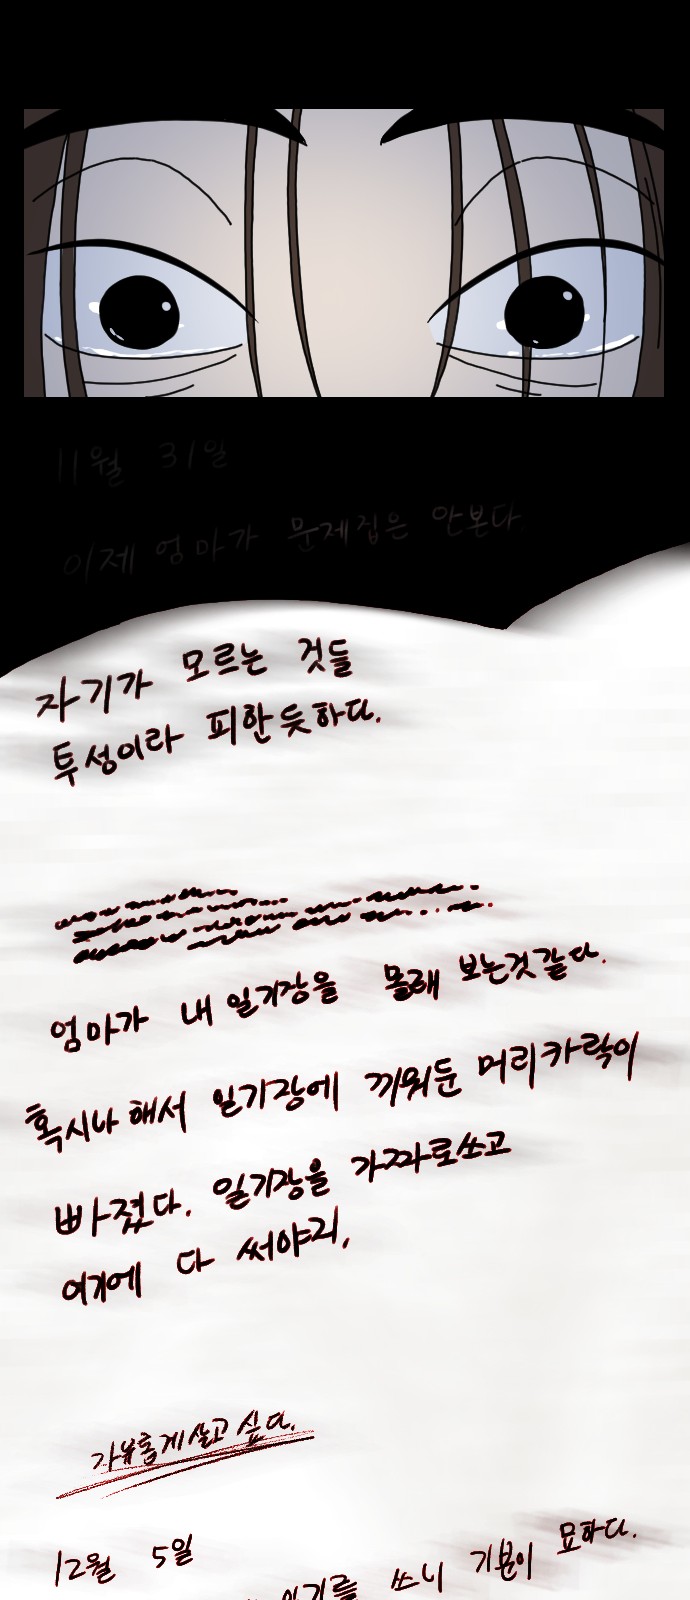 11월 31일
이제 엄마가 문제집은 안본다.
자기가 모르는 것들
투성이라 피한듯하다.
엄마가 내 일기장을 몰래 보는것같다.
혹시나 해서 일기장에 끼워둔 머리카락이
빠졌다. 일기장을 가짜로쓰고
여기에 다 써야지,
자유롭게 살고 싶다.
12월 5일
일기를 쓰니 기분이 묘하다.